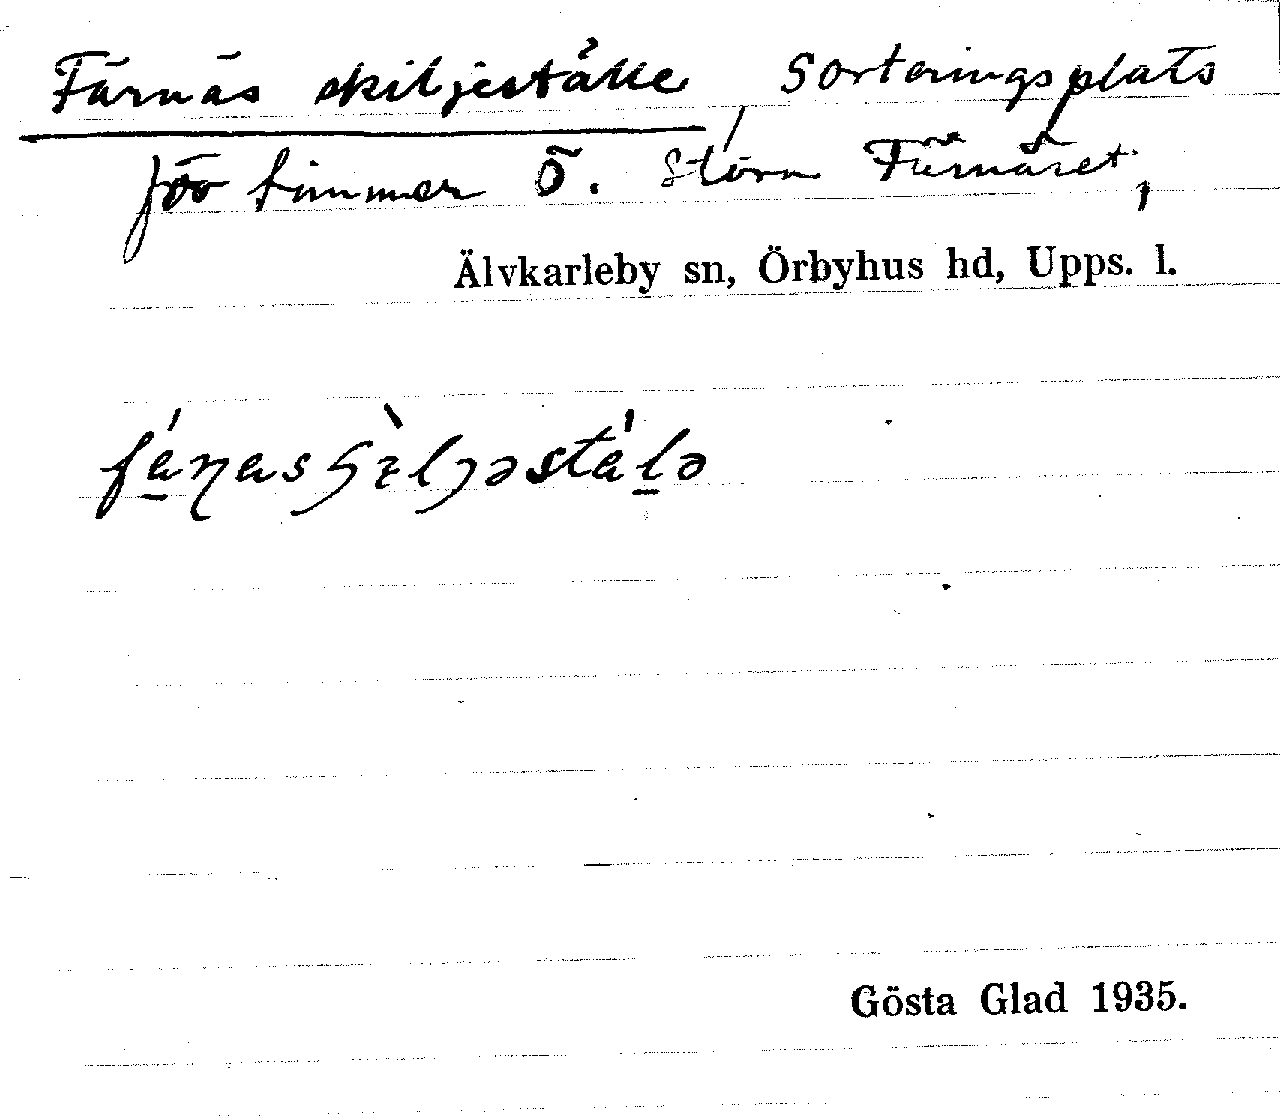 Färnäs skiljeställe, Sorteringsplats
för timmer Ö. Stora Färnäset,
Älvkarleby sn, Örbyhus hd, Upps. l.
Gösta Glad 1935.